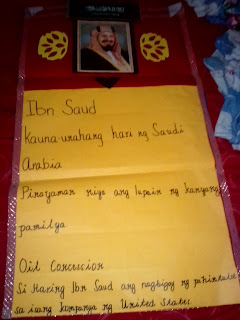 Ibn Saud
Kauna-unahang hari ng Saudi
Arabia
Pinayaman niya ang lupain ng kanyang
pamilya
Oil Concession
Si Haring Ibn Saud ang nagbigay ng pahintulot
sa isang kompanya ng United States